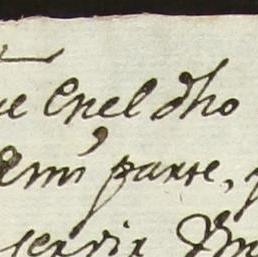 ue Enel dho
Enmi parte,
servir